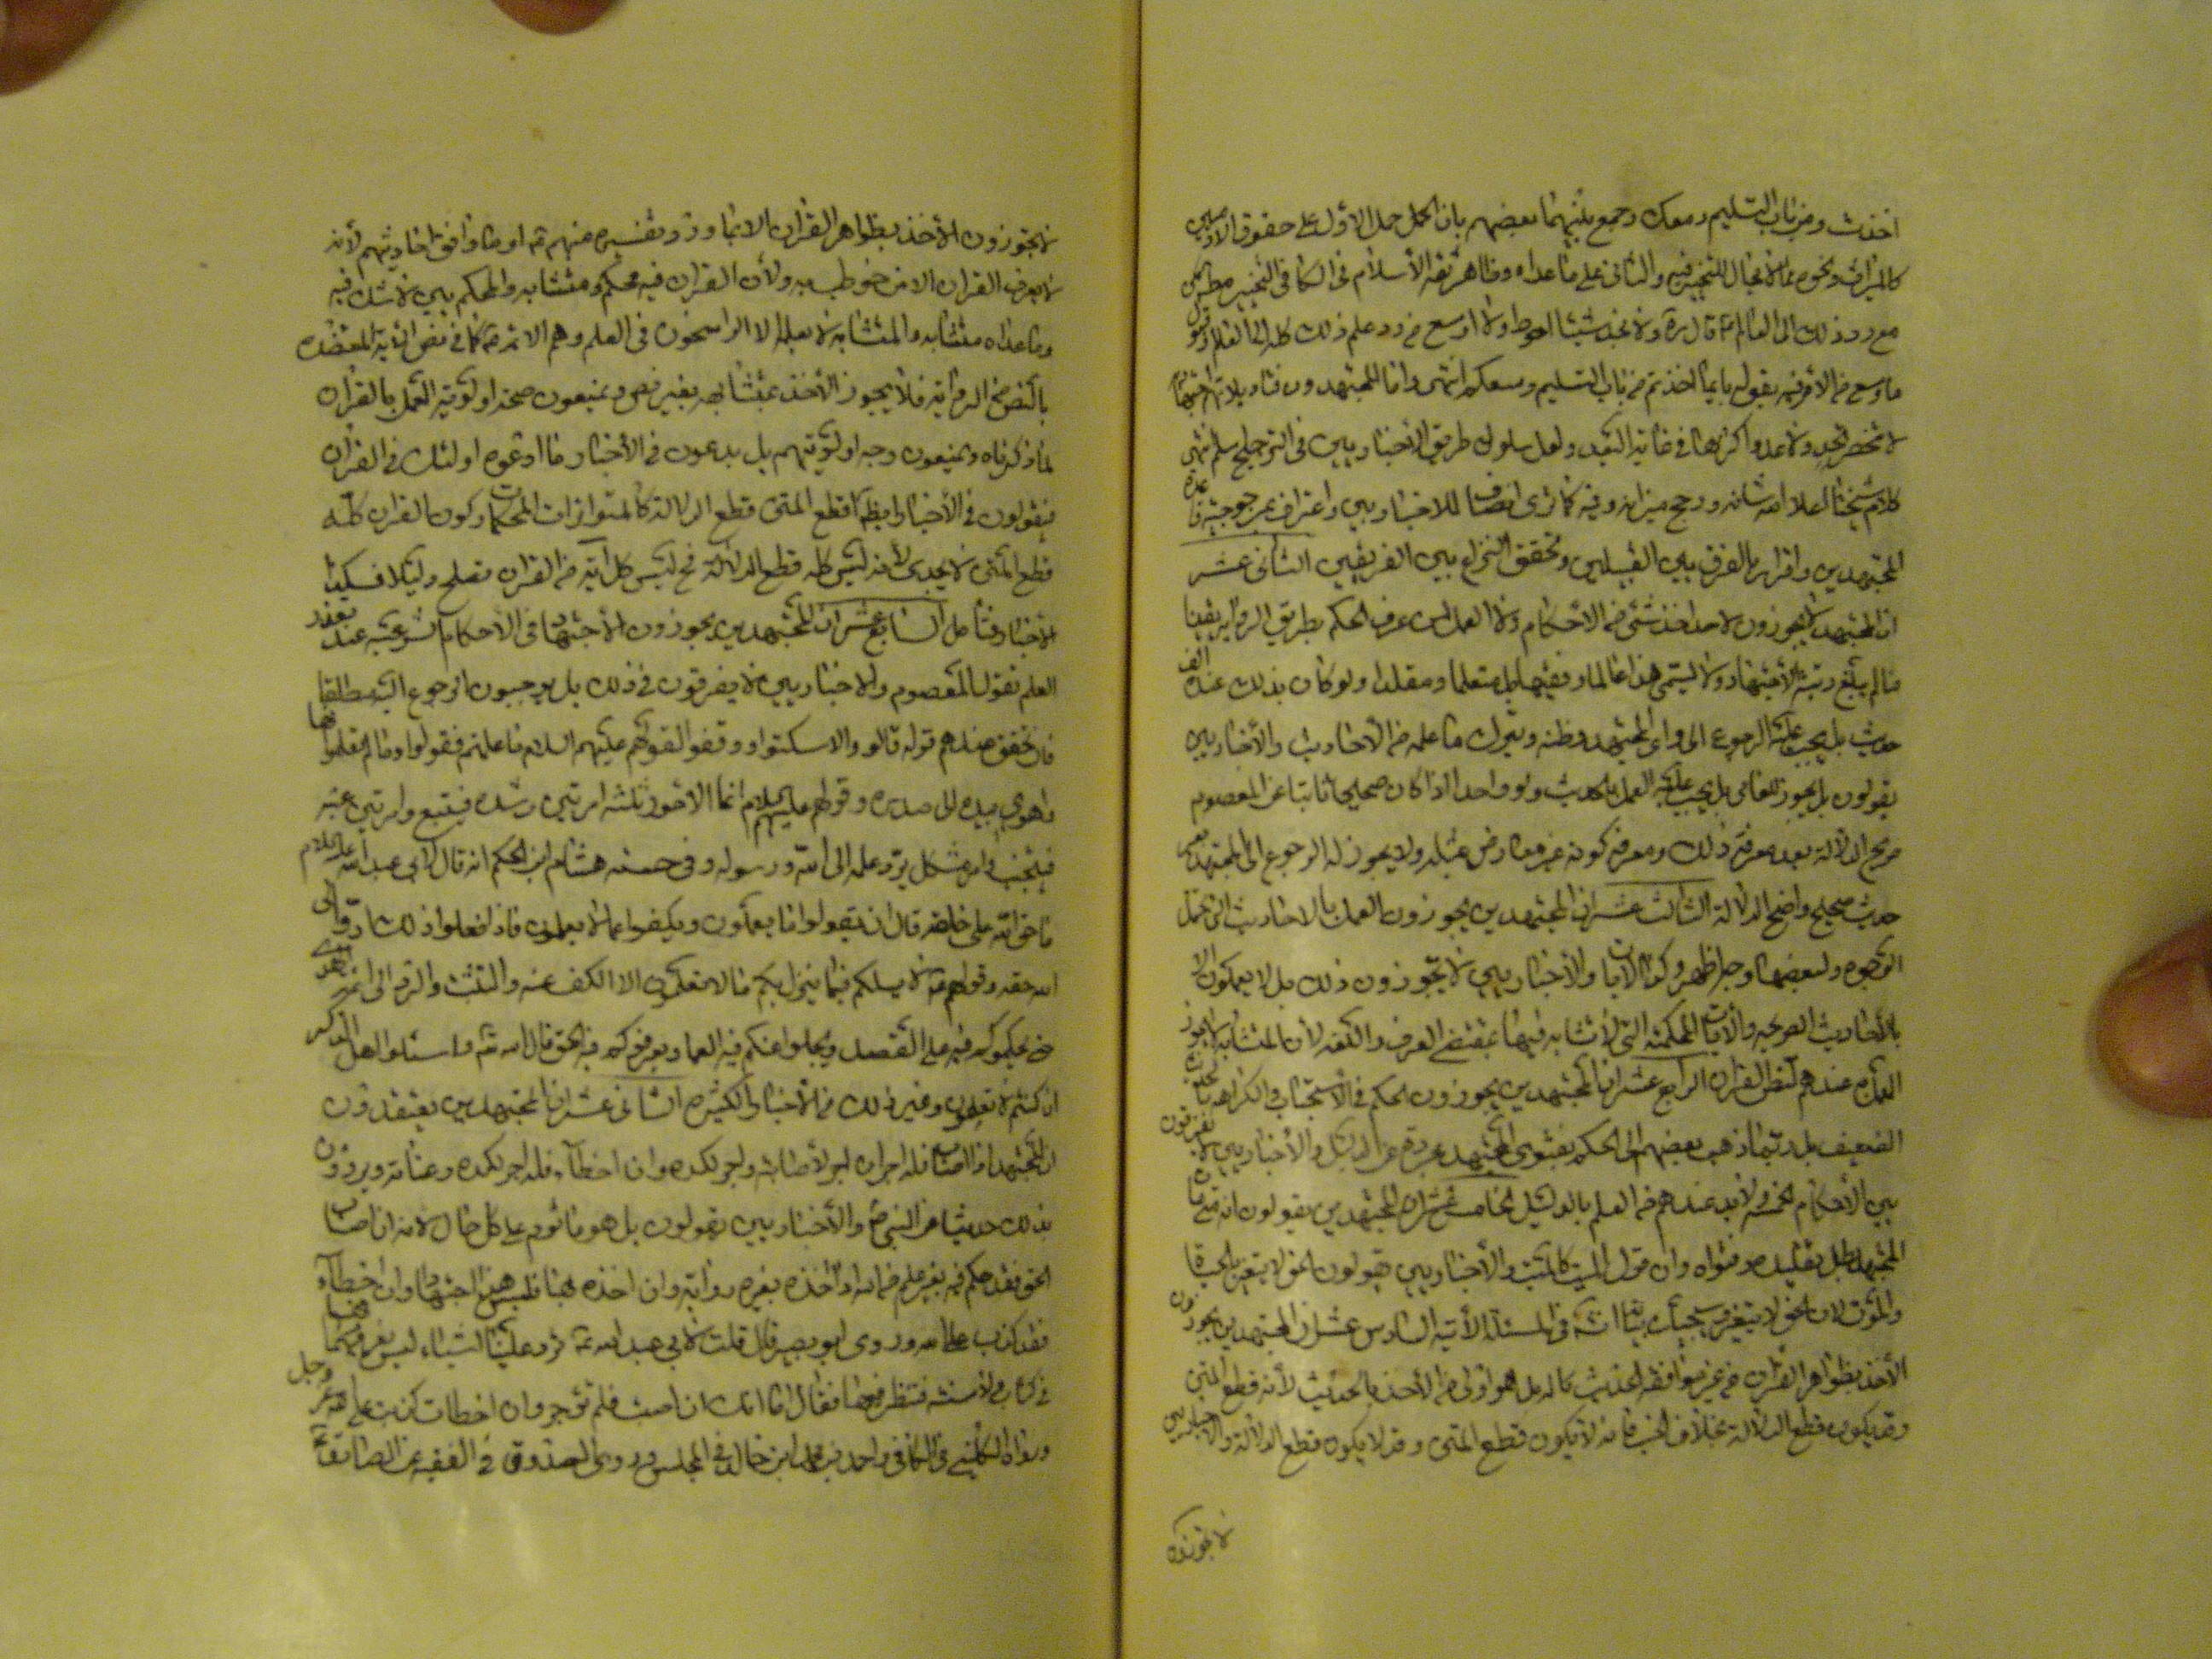 اخذت من باب التسليم وسعك وجمع بينهما بعضهم بان الحمل حمل الاول على حقوق الادميين
كالميراث ونحوه مما لا مجال للتخيير فيه والثاني على ما عداه وظاهر ثقة الاسلام في الكافي التخيير مطلقا
مع رد ذلك الى العالم ع قال ره ولا نجد شيئا احوط ولا اوسع من رد علم ذلك كله الى العالم وقبول
ما وسع من الامر فيه بقوله بايما اخذتم من باب التسليم وسعكم انتهى واما المجتهدون فتاويلاتهم
لا تنحصر بحد ولا عد واكثرها في غاية البعد ولعل سلوك طريق الاخباريين في الترجيح اسلم انتهى
كلام شيخنا اعلا الله شانه ورجح ميزانه وفيه كما ترى انصاف للاخباريين واعتراف بمرجوحية
المجتهدين واقرار بالفرق بين القبيلين وتحقق النزاع بين الفريقين الثاني عشر
ان المجتهدين لا يجوزون لاحد اخذ شئ من الاحكام ولا العمل لمن عرف الحكم بطريق الرواية يقينا
ما لم يبلغ رتبة الاجتهاد ولا يسمى هذا عالما وفقيها بل متعلما ومقلدا ولو كان بذلك عنده الف
حديث بل يجب عليه الرجوع الى راى المجتهد وظنه وترك ما علمه من الاحاديث والاخباريين
يقولون بل يجوز للعامي بل يجب عليه العمل بالحديث ولو واحدا اذا كان صحيحا ثابتا عن المعصوم
صريح الدلالة بعد معرفة ذلك ومعرفة كونه غير معارض بمثله ولا يجوز له الرجوع الى المجتهد بغير
حديث صحيح واضح الدلالة الثالث عشر ان المجتهدين يجوزون العمل بالاحاديث التي تحتمل
الوجوه ولبعضها وجه اظهر وكذا الايات والاخباريين لا يجوزون ذلك بل لا يعملون الا
بالاحاديث الصريحة والايات المحكمة التي لا تشابه فيها بمقتضى العرف واللغة لان المتشابه لا يجوز
العمل به عندهم كنص القران الرابع عشر ان المجتهدين يجوزون الحكم في الاستحباب والكراهة بالحديث
الضعيف بل ربما ذهب بعضهم الى الحكم بفتوى المجتهد مجردة عن الدليل والاخباريين لا يفرقون
بين الاحكام الخمسة ولا بد عندهم من العلم بالدليل الخامس عشر ان المجتهدين يقولون انه متى مات
المجتهد بطل تقليده وفتواه وان قول الميت كالميت والاخباريين يقولون الحق لا يتغير بالحياة
والموت لان الحق لا يتغير وسيجئ بيانه ان شاء الله في المسئلة الاتية السادس عشر ان المجتهدين يجوزون
الاخذ بظواهر القران من غير موافقة الحديث له بل هو اولى من الاخذ بالحديث لانه قطع المتن
وقد يكون قطع الدلالة بخلاف الخبر فانه لا يكون قطع المتن وقد لا يكون قطع الدلالة والاخباريين
لا يجوزون
لا يجوزون الاخذ بظواهر القران الا بما ورد تفسيره منهم ع او ما وافق احاديثهم لانه
لا يعرف القران الا من خوطب به ولان القران فيه محكم ومتشابه والمحكم بين لا شك فيه
وما عداه متشابه والمتشابه لا يعلمه الا الراسخون في العلم وهم الائمة ع كما في نص الاية المعتضدة
بالنص من الرواية فلا يجوز الاخذ بمتشابهه بغير نص ويمنعون صحة اولوية العمل بالقران
لما ذكرناه ويمنعون وجه اولويتهم بل يدعون في الاخبار ما ادعوه اولئك في القران
فيقولون في الاخبار ايضا قطع المتن قطع الدلالة كالمتواترات المحكمات وكون القران كله
قطع المتن لا يجدى لانه ليس كله قطع الدلالة نعم ليس كل اية من القران
الاخبار فتامل السابع عشر ان المجتهدين يجوزون الاجتهاد في الاحكام الشرعية عند تعذر
العلم بقول المعصوم والاخباريين لا يفرقون في ذلك بل يوجبون الرجوع اليه مطلقا
فان تحقق عندهم قوله قالوا والا سكتوا ووقفوا لقولهم عليهم السلام ما علمتم فقولوا وما لم تعلموا فها
واهوى بيده الى صدره وقولهم عليهم السلام انما الامور ثلثة امر تبين رشده فيتبع وامر تبين غيه
فيجتنب وامر مشكل يرد علمه الى الله ورسوله وفي حسنة هشام ابن الحكم انه قال لابي عبد الله عليه السلام
ما حق الله على خلقه قال ان يقولوا ما يعلمون ويكفوا عما لا يعلمون فاذا فعلوا ذلك فقد ادوا الى
الله حقه وقولهم ع لا يسعكم فيما ينزل بكم مما لا تعلمون الا الكف عنه والتثبت والرد الى ائمة الهدى
حتى يحملوكم فيه على القصد ويجلوا عنكم فيه العمى ويعرفوكم فيه الحق قال الله تع فاسئلوا اهل الذكر
ان كنتم لا تعلمون وغير ذلك من الاخبار الكثيرة الثامن عشر ان المجتهدين يعتقدون
ان المجتهد اذا اصاب فله اجران اجر لاصابته واجر لكده وان اخطاء فله اجر لكده وعنائه ويروون
بذلك حديثا عن النبي ص والاخباريين يقولون بل هو ماثوم على كل حال لانه ان اصاب
الحق فقد حكم فيه بغير علم عن الله اذ اخذه بغير رواية وان اخذه بها فليس هذا اجتهادا وان اخطاء
فقد كذب على الله وروى ابو بصير قال قلت لابي عبد الله ع ترد علينا اشياء ليس نعرفها
في كتاب ولا سنة فننظر فيها فقال اما انك ان اصبت فلم تؤجر وان اخطات كذبت على الله عز وجل
ورواه الكليني في الكافي واحمد بن محمد ابن خالد في المحاسن وروى الصدوق في الفقيه عن الصادق ع